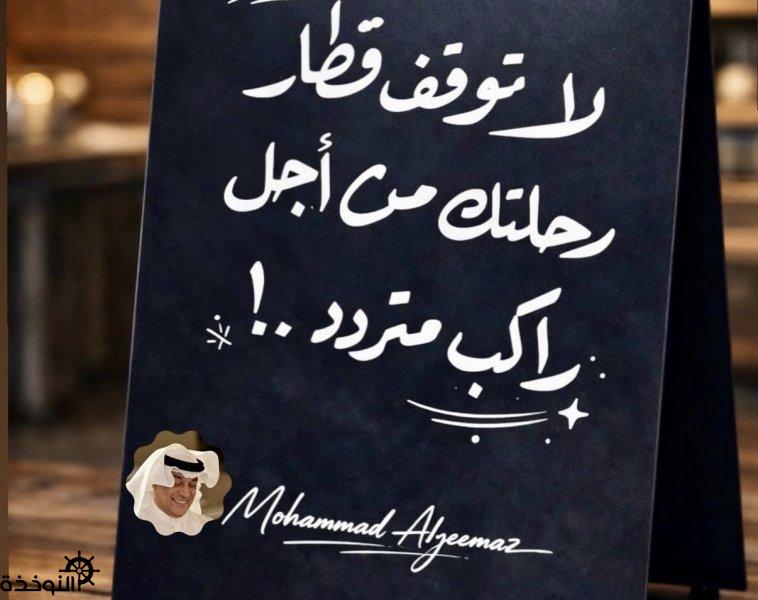 لا توقف قطار
رحلتك من أجل
راكب متردد ..!
Mohammad Alzeemaz
النوخذة